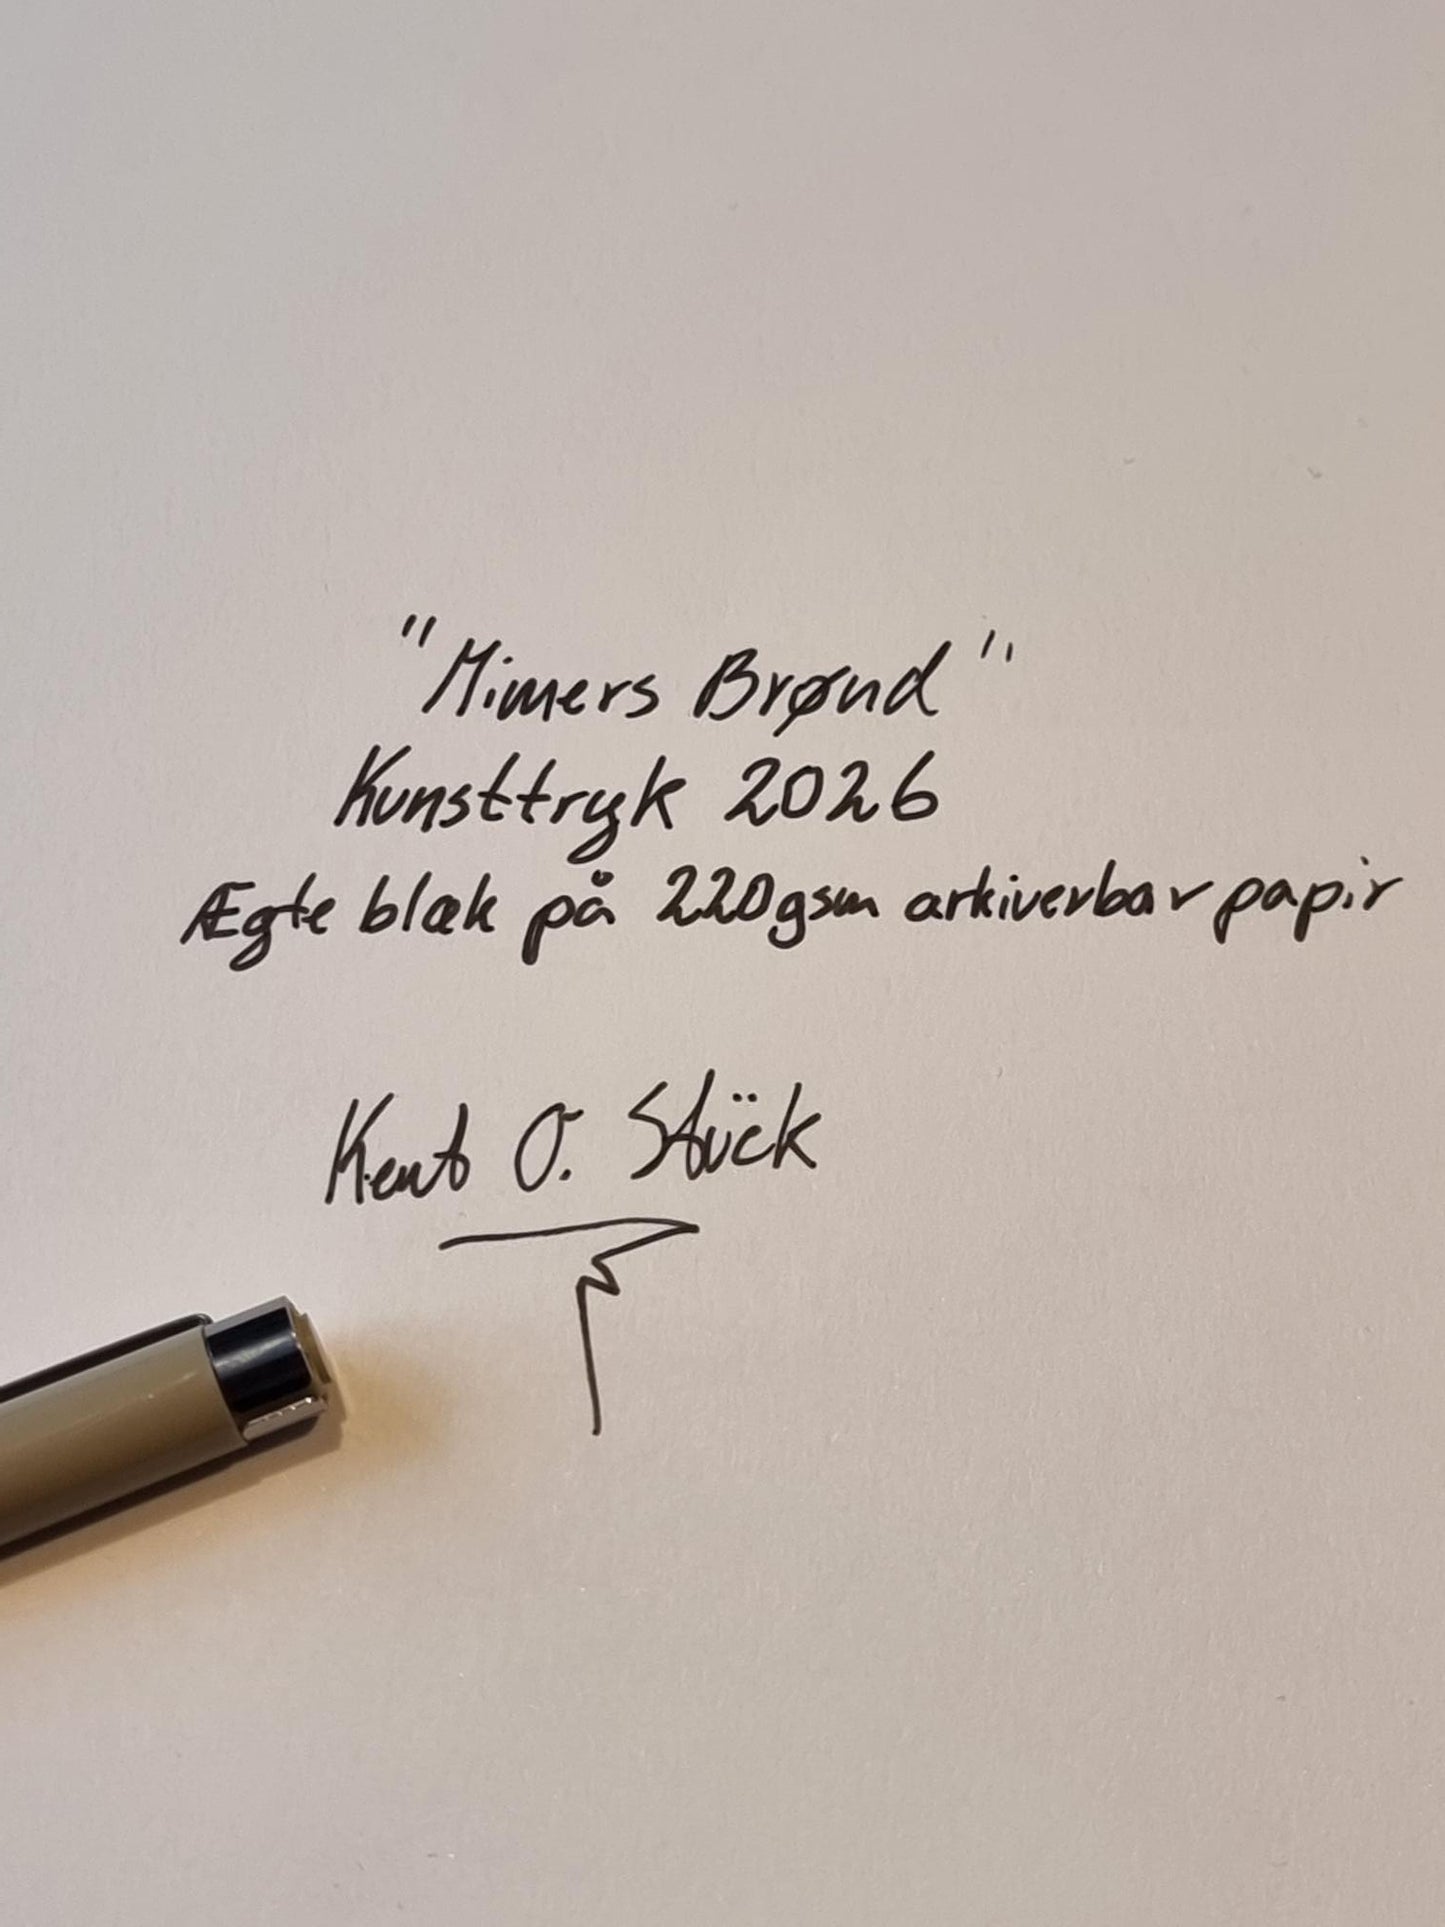 "Mimers Brønd"
Kunsttryk 2026
Ægte blæk på 220gsm arkiverbar papir
Kent O. Stück